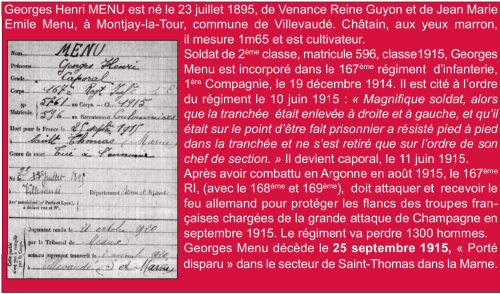 Georges Henri MENU est né le 23 juillet 1895, de Venance Reine Guyon et de Jean Marie
Emile Menu, à Montjay-la-Tour, commune de Villevaudé. Châtain, aux yeux marron,
il mesure 1m65 et est cultivateur.
Soldat de 2ème classe, matricule 596, classe1915, Georges
Menu est incorporé dans le 167ème régiment d'infanterie,
1ère Compagnie, le 19 décembre 1914. Il est cité à l'ordre
du régiment le 10 juin 1915 : « Magnifique soldat, alors
que la tranchée était enlevée à droite et à gauche, et qu'il
était sur le point d'être fait prisonnier a résisté pied à pied
dans la tranchée et ne s'est retiré que sur l'ordre de son
chef de section. » Il devient caporal, le 11 juin 1915.
Après avoir combattu en Argonne en août 1915, le 167ème
RI, (avec le 168ème et 169ème), doit attaquer et recevoir le
feu allemand pour protéger les flancs des troupes fran-
çaises chargées de la grande attaque de Champagne en
septembre 1915. Le régiment va perdre 1300 hommes.
Georges Menu décède le 25 septembre 1915, « Porté
disparu » dans le secteur de Saint-Thomas dans la Marne.
MENU
Georges Henri
Grade
Caporal
Corps
167e Regt
Matricule
5761 au Corps. — Cl. 1915
596 au Recrutement
Mort pour la France le
Genre de mort
Né le
Villevaudé Département
Arr' municipal (p' Paris et Lyon),
à défaut rue et N°
Jugement rendu le
par le Tribunal de Meaux
jugement transcrit le
Villevaudé S. et Marne